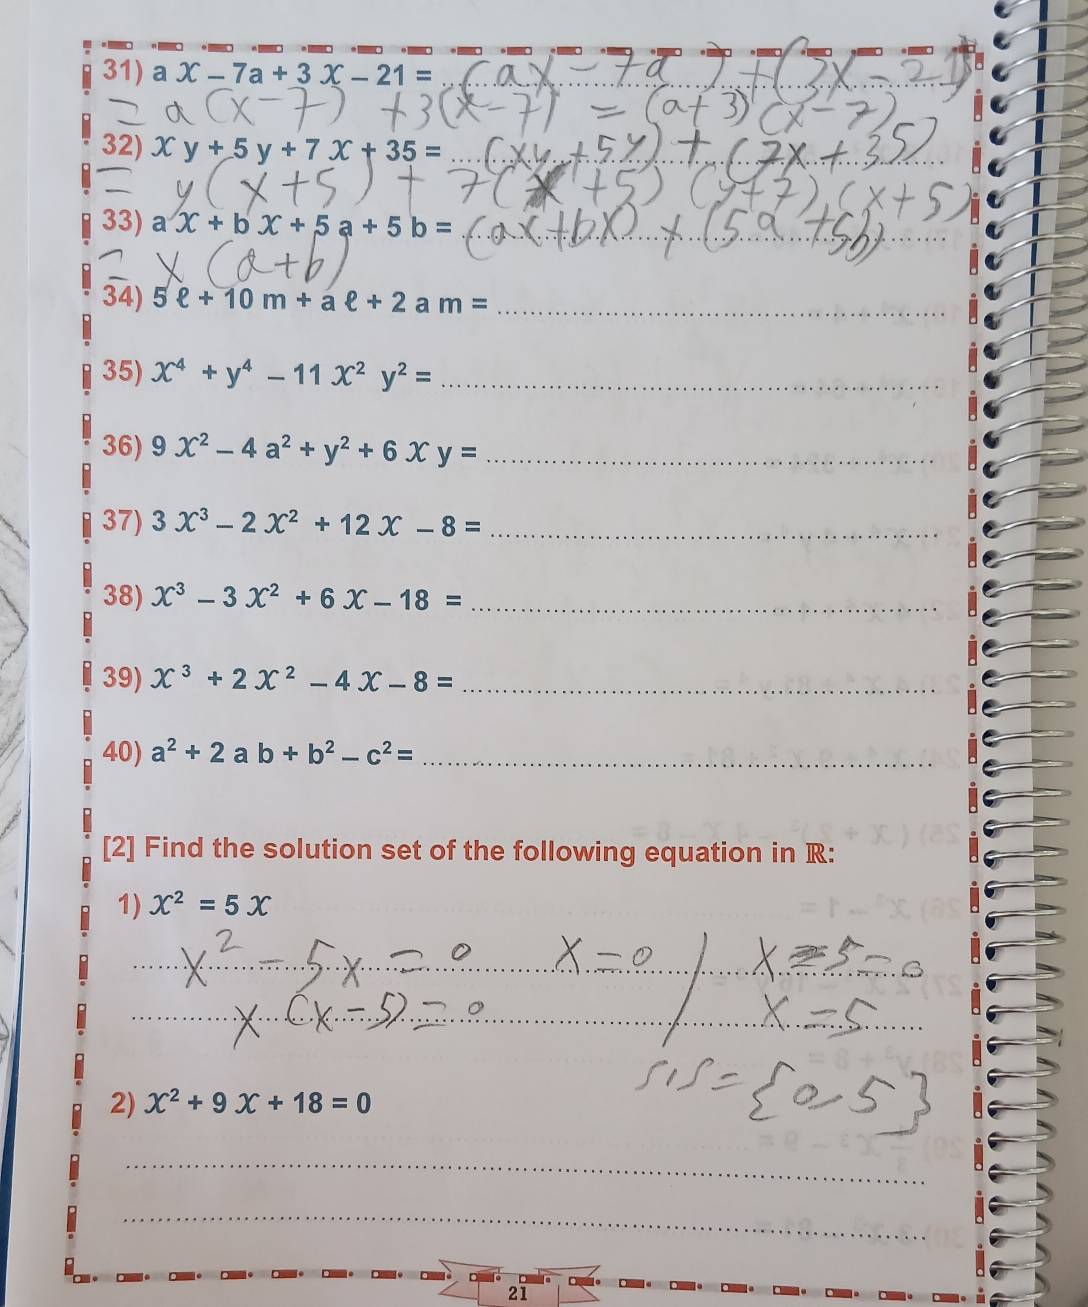 31) a x – 7a + 3 x – 21 = (ax – 7a) + (3x – 21)
= a(x – 7) + 3(x – 7) = (a+3)(x – 7)
32) x y + 5 y + 7 x + 35 = (xy + 5y) + (7x + 35)
= y(x+5) + 7(x+5) (y+7)(x+5)
33) a x + b x + 5 a + 5 b = (ax+bx) + (5a+5b)
= x(a+b)
34) 5 ℓ + 10 m + a ℓ + 2 a m =
35) x⁴ + y⁴ – 11 x² y² =
36) 9 x² – 4 a² + y² + 6 x y =
37) 3 x³ – 2 x² + 12 x – 8 =
38) x³ – 3 x² + 6 x – 18 =
39) x³ + 2 x² – 4 x – 8 =
40) a² + 2 a b + b² – c² =
[2] Find the solution set of the following equation in ℝ:
1) x² = 5 x
x² – 5x = 0 x = 0 / x – 5 = 0
x (x – 5) = 0 x = 5
S,S = {0, 5}
2) x² + 9 x + 18 = 0
21